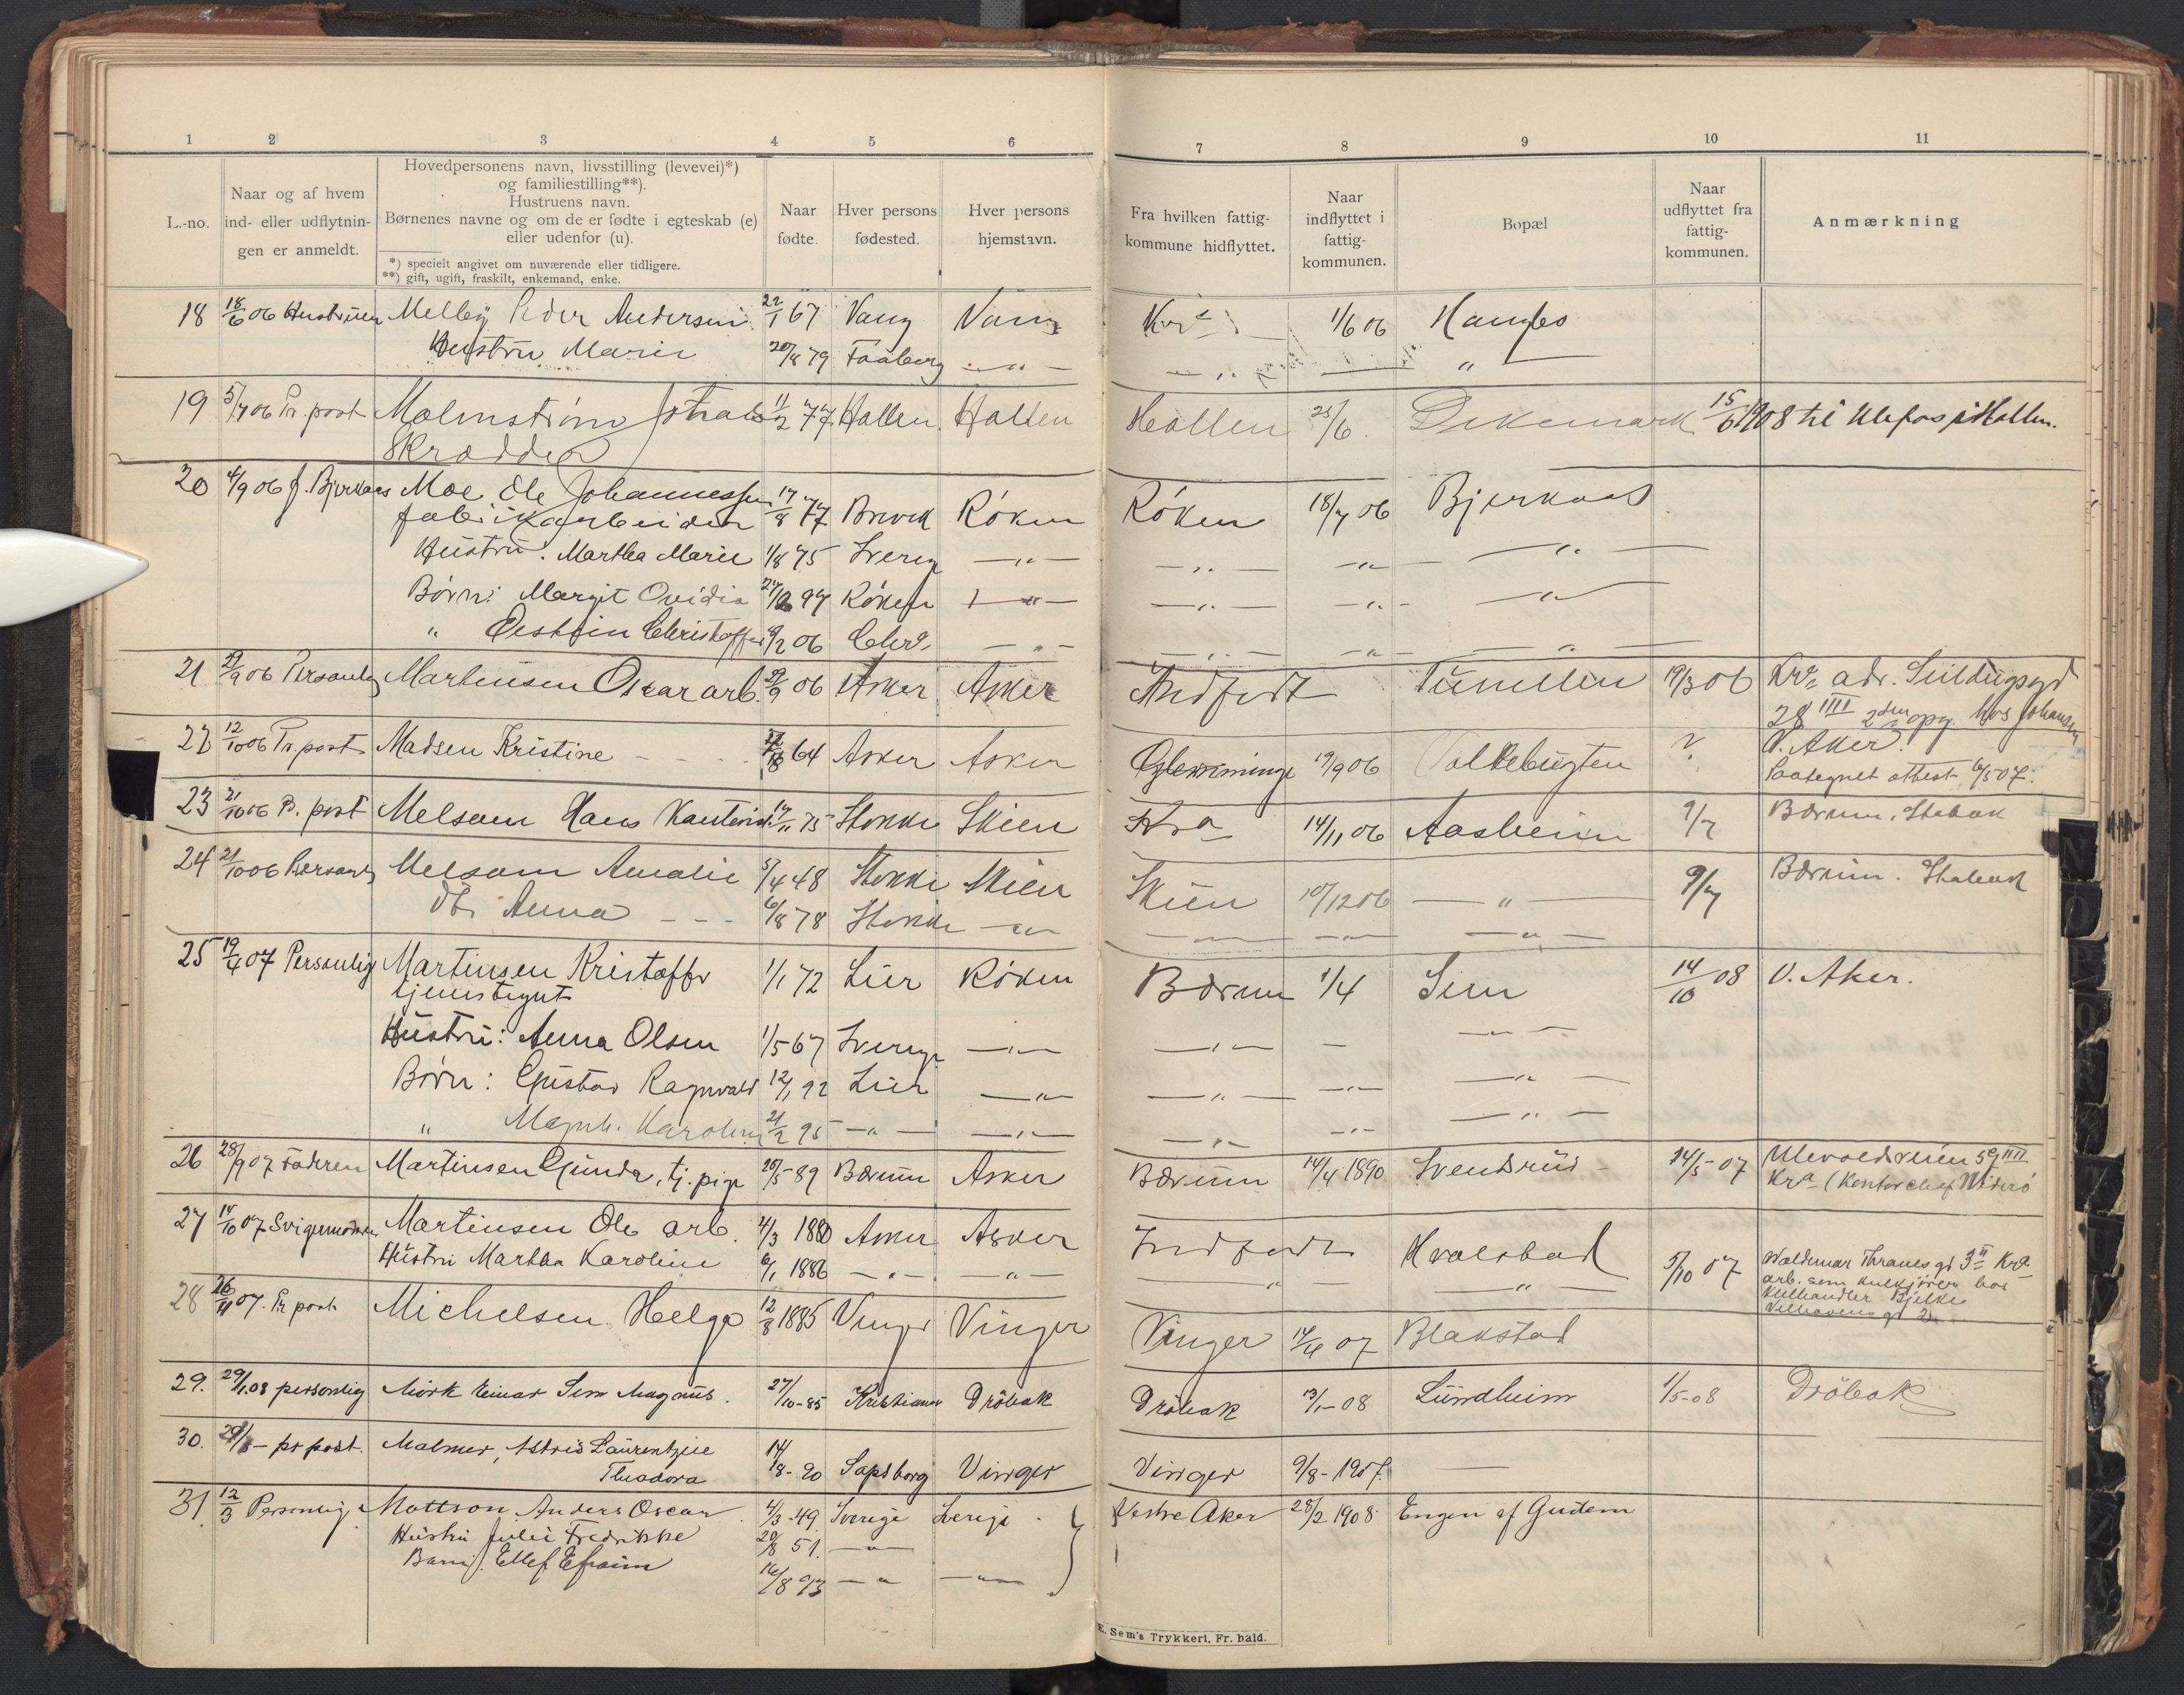 1 2 3 4 5 6 7 8 9 10 11
L.-no.
Naar og af hvem
ind- eller udflytnin-
gen er anmeldt.
Hovedpersonens navn, livsstilling (levevei)*)
og familiestilling**).
Hustruens navn.
Børnenes navne og om de er fødte i egteskab (e)
eller udenfor (u).
*) specielt angivet om nuværende eller tidligere.
**) gift, ugift, fraskilt, enkemand, enke.
Naar
fødte.
Hver persons
fødested.
Hver persons
hjemstavn.
Fra hvilken fattig-
kommune hidflyttet.
Naar
indflyttet i
fattig-
kommunen.
Bopæl
Naar
udflyttet fra
fattig-
kommunen.
Anmærkning
18 18/6 06 Hustruen Melby Peder Andersen 22/1 67 Vang Vang Kra 1/6 06
Hustru Marie 20/8 79 Faaberg — " — — " — "
19 5/7 06 Pr. post Malmstrøm Johan 11/2 77 Hollen Hollen Hollen 25/6 Dikemark 15/6 1908 til Ulefos i Hollen.
Skrædder
20 4/9 06 J. Bjerkaas Moe Ole Johannessen 17/8 77 Brevik Røken Røken 18/7 06 Bjerkaas
fabrikarbeider
Hustru: Martha Marie 1/8 75 Sverig — " — — " — — " — — " —
Børn: Margit Ovidia 97 Røken — " — — " — — " — — " —
" Øistein Christoffer 9/2 06 — " — — " — — " — — " —
21 29/9 06 Personlig Martinsen Oscar arb. 29/9 06 Asker Asker Indfødt Tunellen 19/3 06 Kra adr.
28 IIII 2den opg. hos Johansen
22 12/10 06 Pr. post Madsen Kristine 64 Asker Asker Glemminge 19/9 06 Valkebugten ? V. Aker.
Paategnet attest 6/5 07.
23 21/10 06 Pr. post Melsom Hans Kontorist 17/11 75 Stokke Skien Kra 14/11 06 Aasheim 9/7 Bærum, Stabak
24 21/10 06 Personlig Melsom Amalie 5/4 48 Stokke Skien Skien 10/12 06 — " — 9/7 Bærum. Stabak
Dtr Anna 6/8 78 Stokke — " — — " — — " — — " —
25 19/4 07 Personlig Martinsen Kristoffer 1/1 72 Lier Røken Bærum 1/4 Sem 14/10 08 V. Aker.
tjenstegut
Hustru: Anna Olsen 1/5 67 Sverige — " — — " — — — " —
Børn: Gustav Ragnvald 12/1 92 Lier — " — — " — — " — — " —
" Magnh. Karoline 21/2 95 — " — — " — — " — — " — — " —
26 28/9 07 Faderen Martinsen Gunda, tj. pige 20/5 89 Bærum Asker Bærum 14/4 1890 Svendsrud 14/5 - 07 Ulevoldsveien 59 III
Kra (Kontorchef
27 14/10 07 Svigermoderen Martinsen Ole arb. 4/3 1880 Asker Asker Indfødt Hvalstad 5/10 07 Waldemar Thranes gd 3 II Kra
Hustru Martha Karoline 6/1 1886 — " — — " — — " — — " — arb. som kulkjører hos
Kulhandler Bjelke
Welhavens gt 2
28 26/11 07. Pr post Michelsen Helga 12/8 1885 Vinger Vinger Vinger 14/4 07 Blakstad
29. 29/1 08 personlig Mørk Einar Sem Magnus. 27/10-85 Kristiania Drøbak Drøbak 13/1-08 Lundheim 1/5-08 Drøbak
30. 29/1 — pr post. Malmer, Astrid Laurentzie 14/8-90 Sapsborg Vinger Vinger 9/8-1907. —
Theodora
31 12/3 Personlig Mattson Anders Oscar 4/3-49 Sverige Sverige Vestre Aker 28/2 1908 Engen af Gudem
Hustru Julie Fredrikke 20/8 51. — " —
Barn Ellef Efraim 16/8 93 — " — — " —
E. Sem's Trykkeri, Fr. hald.